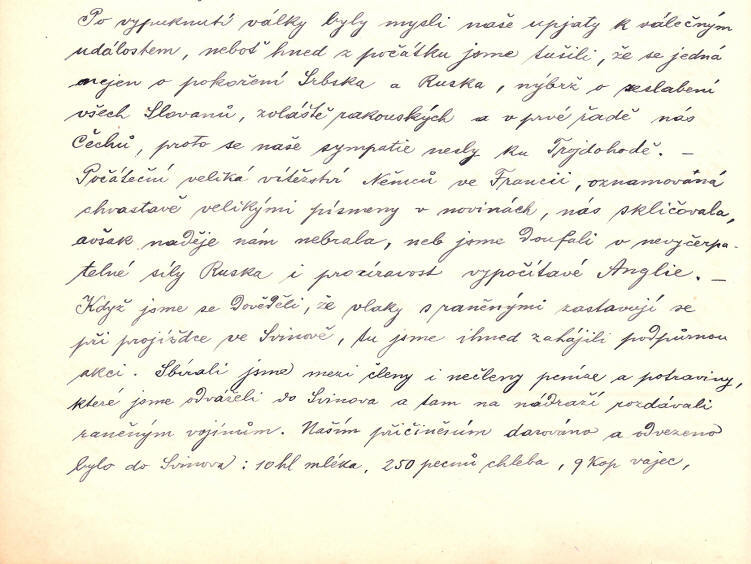 Po vypuknutí války byly mysli naše upjaty k válečným
událostem, neboť hned z počátku jsme tušili, že se jedná
nejen o pokoření Srbska a Ruska, nýbrž o seslabení
všech Slovanů, zvláště rakouských a v prvé řadě nás
Čechů, proto se naše sympatie nesly ku Trojdohodě. –
Počáteční veliká vítězství Němců ve Francii, oznamovaná
chvastavě velikými písmeny v novinách, nás skličovala,
avšak naděje nám nebrala, neb jsme doufali v nevyčerpa-
telné síly Ruska i prozíravost vypočítavé Anglie. –
Když jsme se dověděli, že vlaky s raněnými zastavují se
při projížďce ve Svinově, tu jsme ihned zahájili podpůrnou
akci. Sbírali jsme mezi členy i nečleny peníze a potraviny,
které jsme odváželi do Svinova a tam na nádraží rozdávali
raněným vojínům. Naším přičiněním darováno a odvezeno
bylo do Svinova: 10 hl mléka, 250 pecnů chleba, 9 kop vajec,